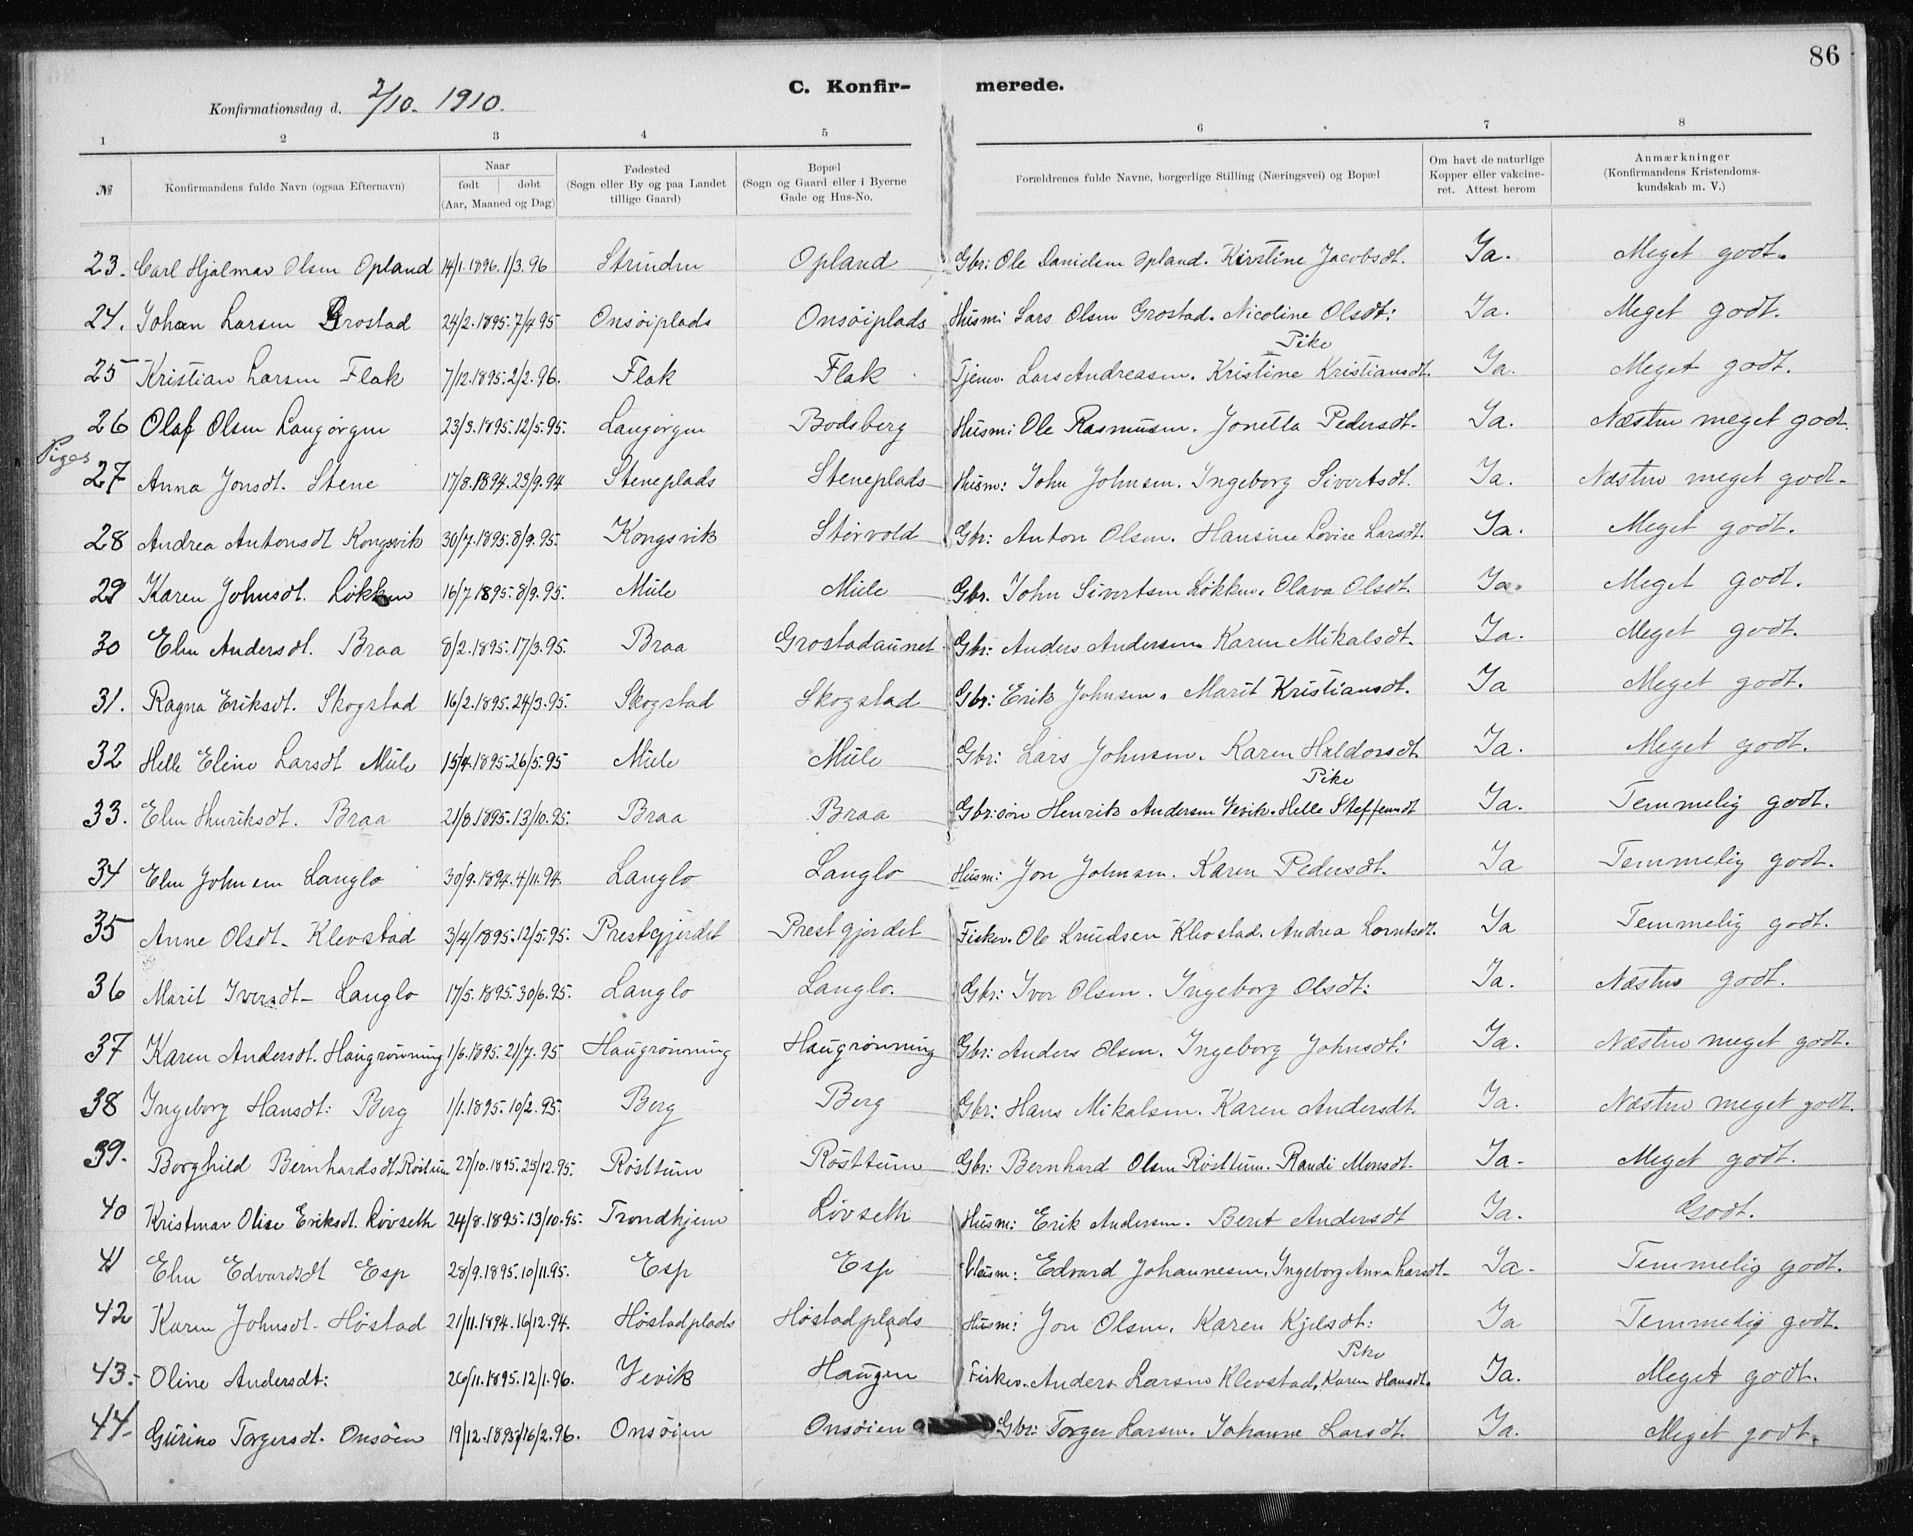 86
C. Konfirmerede.
Konfirmationsdag d. 2/10. 1910.
1 2 3 4 5 6 7 8
№ | Konfirmandens fulde Navn (ogsaa Efternavn) | Naar født | døbt (Aar, Maaned og Dag) | Fødested (Sogn eller By og paa Landet tillige Gaard) | Bopæl (Sogn og Gaard eller i Byerne Gade og Hus-No. | Forældrenes fulde Navne, borgerlige Stilling (Næringsvei) og Bopæl | Om havt de naturlige Kopper eller vakcineret. Attest herom | Anmærkninger (Konfirmandens Kristendomskundskab m. V.)
23. Carl Hjalmar Olsen Opland 14/1.1896. 1/3.96 Strinden Opland Gbr: Ole Danielsen Opland. Kirstine Jacobsdt. Ja. Meget godt.
24. Johan Larsen Grostad 24/2.1895. 7/4.95 Onsøiplads Onsøiplads Husm: Lars Olsen Grostad. Nicoline Olsdt: Ja. Meget godt.
25 Kristian Larsen Flak 7/12.1895. 2/2.96. Flak Flak Tjener. Lars Andreasen. Pike Kristine Kristiansdt. Ja. Meget godt.
26 Olaf Olsen Langørgen 23/3.1895. 12/5.95. Langørgen Bodsberg Husm: Ole Rasmusen. Jonetta Pedersdt. Ja. Næsten meget godt.
Piger
27 Anna Jonsdt. Stene 17/8.1894. 23/9.94 Steneplads Steneplads Husm: John Johnsen. Ingeborg Sivertsdt. Ja. Næsten meget godt.
28 Andrea Antonsdt Kongsvik 30/7.1895. 8/9.95. Kongsvik Størvold Gbr: Anton Olsen. Hansine Lovise Larsdt. Ja. Meget godt.
29 Karen Johnsdt. Løkken 16/7.1895. 8/9.95. Mule Mule Gbr. John Sivertsen Løkken. Olava Olsdt. Ja. Meget godt.
30 Elen Andersdt. Braa 8/2.1895. 17/3.95. Braa Grostadaunet Gbr: Anders Andersen. Karen Mikalsdt. Ja. Meget godt.
31. Ragna Eriksdt. Skogstad 16/2.1895. 24/3.95. Skogstad Skogstad Gbr: Erik Johnsen. Marit Kristiansdt. Ja Meget godt.
32 Helle Eline Larsdt Mule 15/4.1895. 26/5.95 Mule Mule Gbr: Lars Johnsen. Karen Haldorsdt. Ja. Meget godt.
33. Elen Henriksdt. Braa 21/8.1895. 13/10.95. Braa Braa Gbr:søn Henrik Andersen Vevik. Pike Helle Steffensdt Ja. Temmelig godt.
34 Elen Johnsen Langlo 30/9.1894. 4/11.94. Langlo Langlo Husm: Jon Johnsen. Karen Pedersdt. Ja Temmelig godt.
35 Anne Olsdt. Klevstad 3/4/1895. 12/5.95. Prestgjerdet Prestgjerdet Fisker. Ole Knudsen Klevstad. Andrea Lorntsdt. Ja Temmelig godt.
36 Marit Iversdt. Langlo 17/5.1895. 30/6.95. Langlo Langlo. Gbr: Iver Olsen. Ingeborg Olsdt: Ja. Næsten godt.
37 Karen Andersdt. Haugrønning 1/6.1895. 21/7.95 Haugrønning Haugrønning Gbr: Anders Olsen. Ingeborg Johnsdt: Ja. Næsten meget godt.
38 Ingeborg Hansdt: Berg 1/1.1895. 10/2.95. Berg Berg Gbr: Hans Mikalsen. Karen Andersdt. Ja. Næsten meget godt.
39. Borghild Bernhardsdt. Røsttum 27/10.1895. 25/12.95. Røsttum Røsttum Gbr: Bernhard Olsen Røsttum. Randi Monsdt. Ja. Meget godt.
40 Olise Eriksdt. Løvseth 24/8.1895. 13/10.95. Trondhjem Løvseth Husm: Erik Andersen. Beret Andersdt Ja. Godt.
41 Elen Edvardsdt Esp 28/9.1895. 10/11.95. Esp Esp Husm: Edvard Johannesen. Ingeborg Anna Larsdt. Ja. Temmelig godt.
42 Karen Johnsdt. Høstad 21/11.1894. 16/12.94. Høstadplads Høstadplads Husm: Jon Olsen. Karen Kjelsdt: Ja Temmelig godt.
43. Oline Andersdt: 26/11.1895. 12/1.96. Vevik Haugen Fisker. Anders Larsen Klevstad. Pike Karen Hansdt. Ja. Meget godt.
44. Gurine Torgersdt. Onsøien 19/12.1895. 16/2.96. Onsøien Onsøien Gbr: Torger Larsen. Johanne Larsdt. Ja. Meget godt.